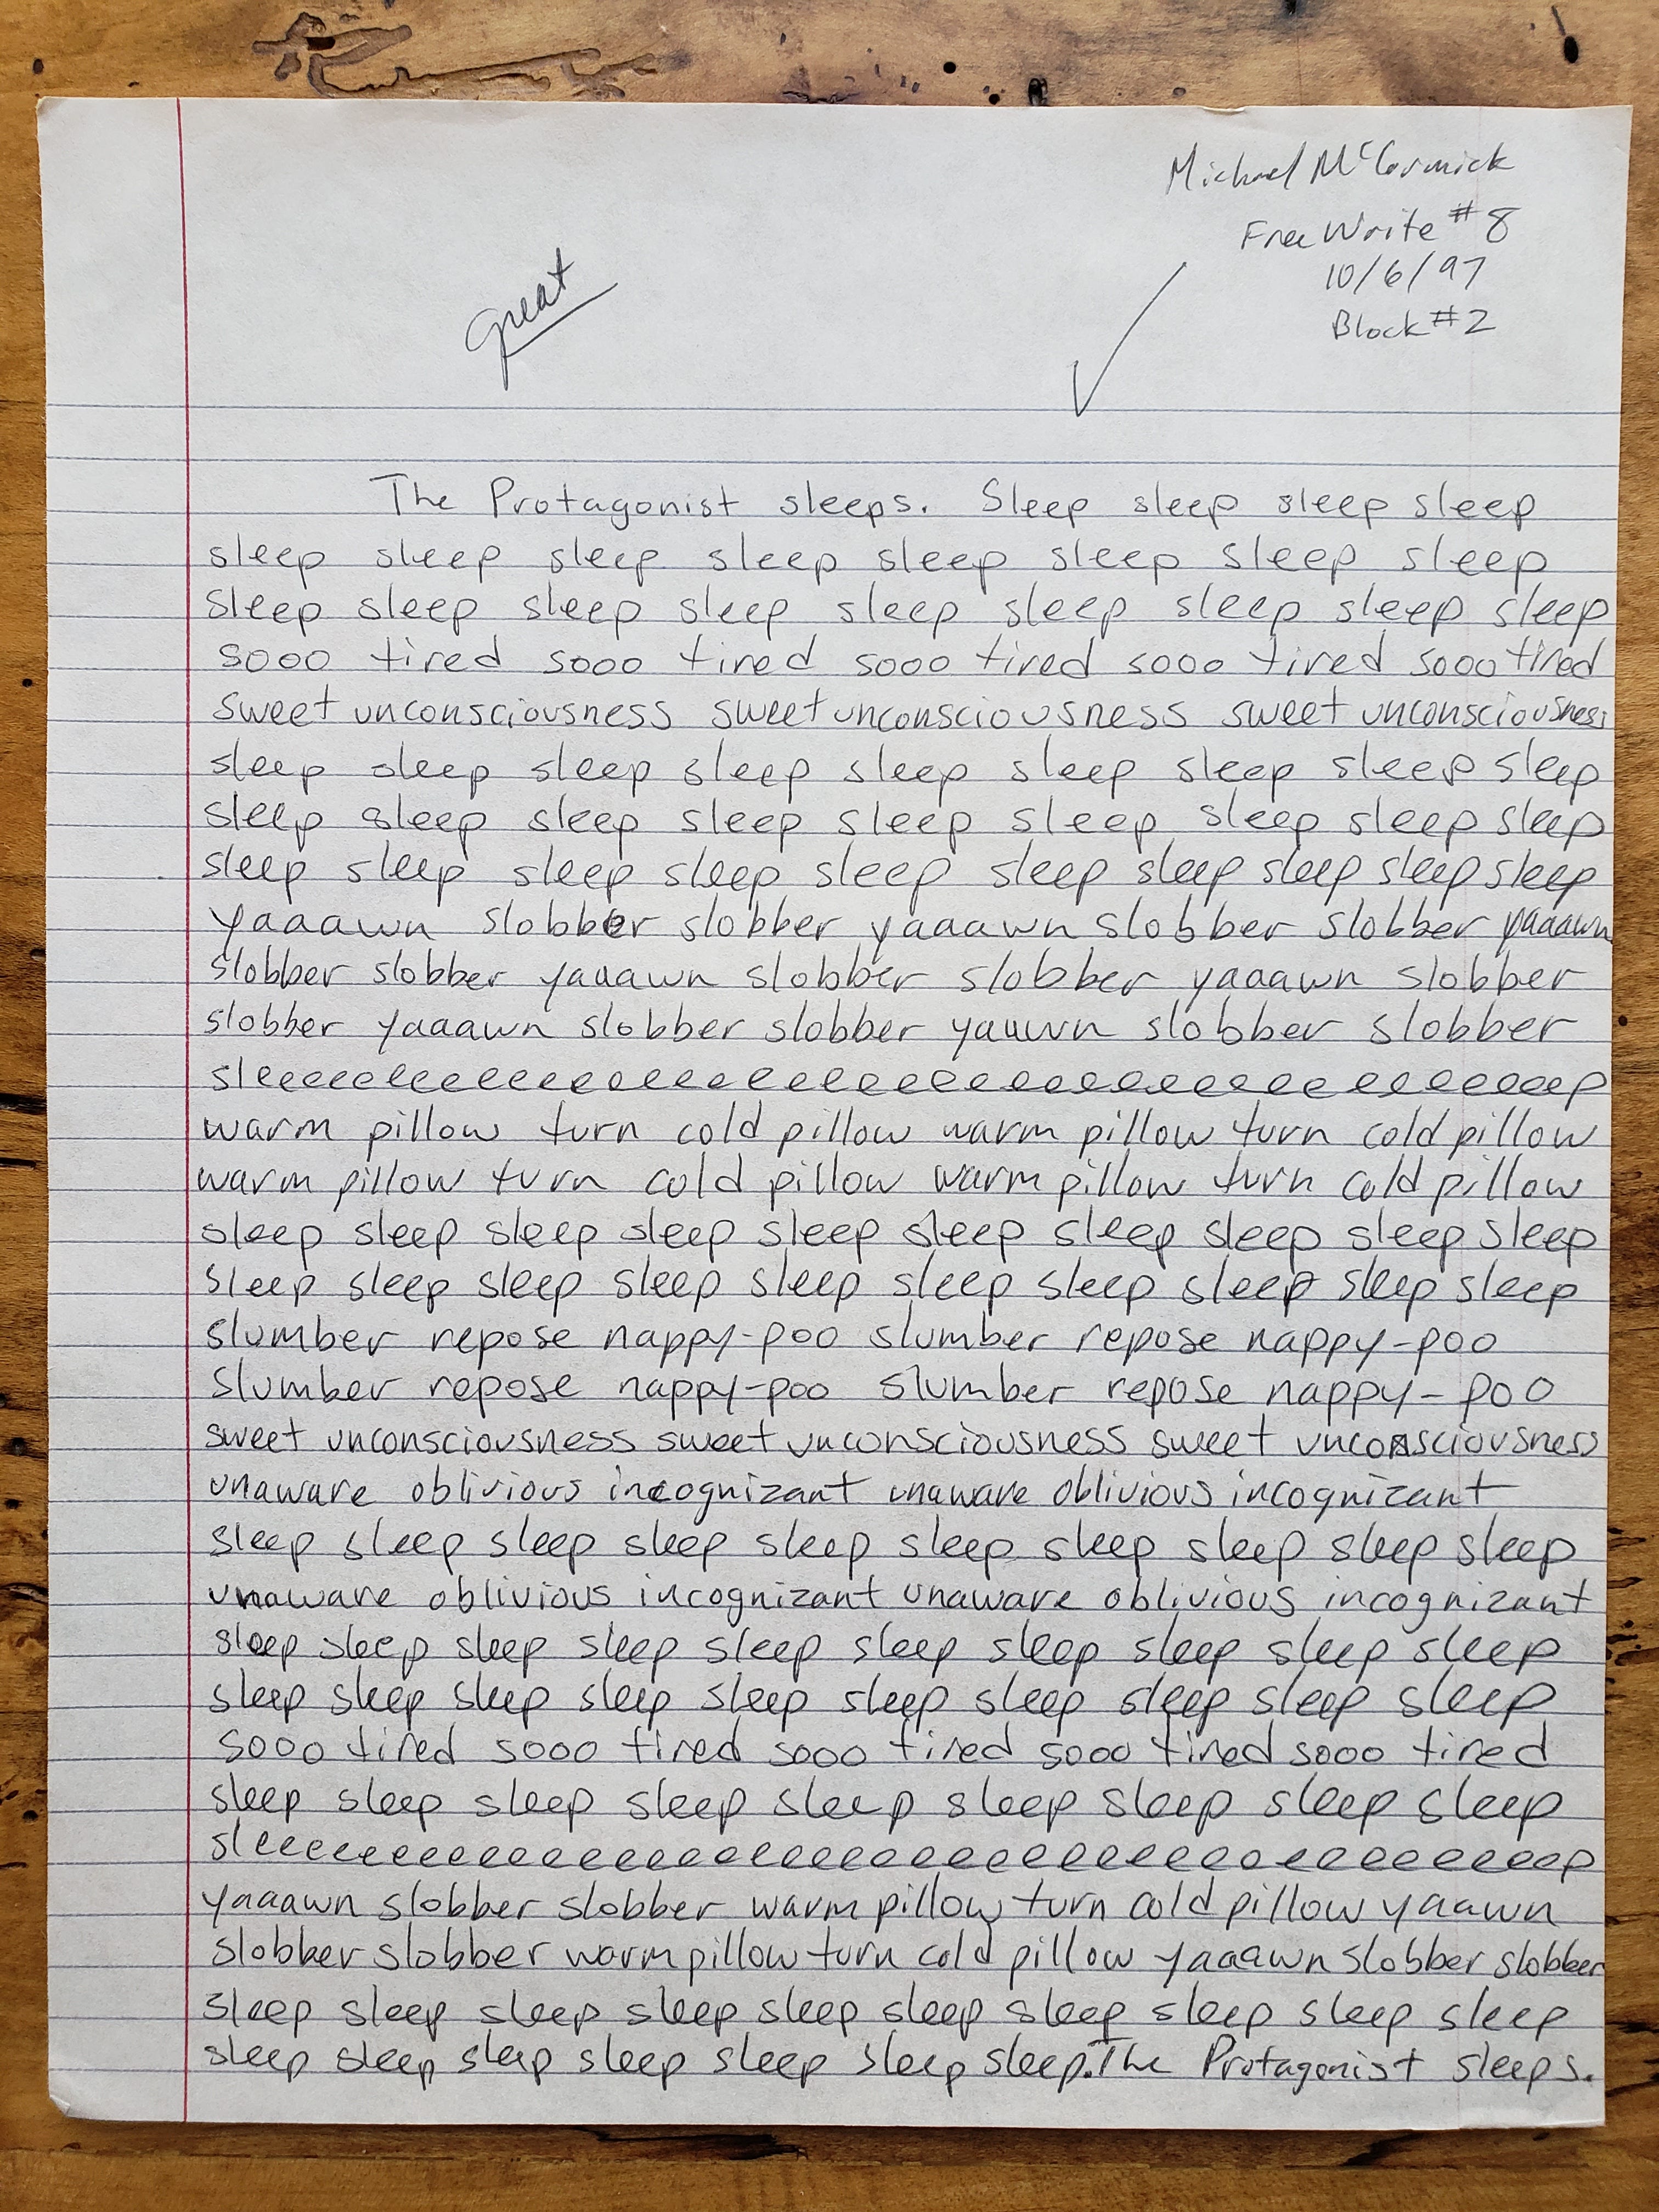 Michael McCormick
Free Write #8
10/6/97
Block #2
great
The Protagonist sleeps. Sleep sleep sleep sleep
sleep sleep sleep sleep sleep sleep sleep sleep
sleep sleep sleep sleep sleep sleep sleep sleep sleep
sooo tired sooo tired sooo tired sooo tired sooo tired
sweet unconsciousness sweet unconsciousness sweet unconsciousness
sleep sleep sleep sleep sleep sleep sleep sleep sleep
sleep sleep sleep sleep sleep sleep sleep sleep sleep
sleep sleep sleep sleep sleep sleep sleep sleep sleep sleep
yaaawn slobber slobber yaaawn slobber slobber yaaawn
slobber slobber yaaawn slobber slobber yaaawn slobber
slobber yaaawn slobber slobber yaaawn slobber slobber
sleeeeeeeeeeeeeeeeeeeeeeeeeeeeeeeeep
warm pillow turn cold pillow warm pillow turn cold pillow
warm pillow turn cold pillow warm pillow turn cold pillow
sleep sleep sleep sleep sleep sleep sleep sleep sleep sleep
sleep sleep sleep sleep sleep sleep sleep sleep sleep sleep
slumber repose nappy-poo slumber repose nappy-poo
slumber repose nappy-poo slumber repose nappy-poo
sweet unconsciousness sweet unconsciousness sweet unconsciousness
unaware oblivious incognizant unaware oblivious incognizant
sleep sleep sleep sleep sleep sleep sleep sleep sleep sleep
unaware oblivious incognizant unaware oblivious incognizant
sleep sleep sleep sleep sleep sleep sleep sleep sleep sleep
sleep sleep sleep sleep sleep sleep sleep sleep sleep sleep
sooo tired sooo tired sooo tired sooo tired sooo tired
sleep sleep sleep sleep sleep sleep sleep sleep sleep
sleeeeeeeeeeeeeeeeeeeeeeeeeeeeeeeeeep
yaaawn slobber slobber warm pillow turn cold pillow yaaawn
slobber slobber warm pillow turn cold pillow yaaawn slobber slobber
sleep sleep sleep sleep sleep sleep sleep sleep sleep sleep
sleep sleep sleep sleep sleep sleep sleep. The Protagonist sleeps.